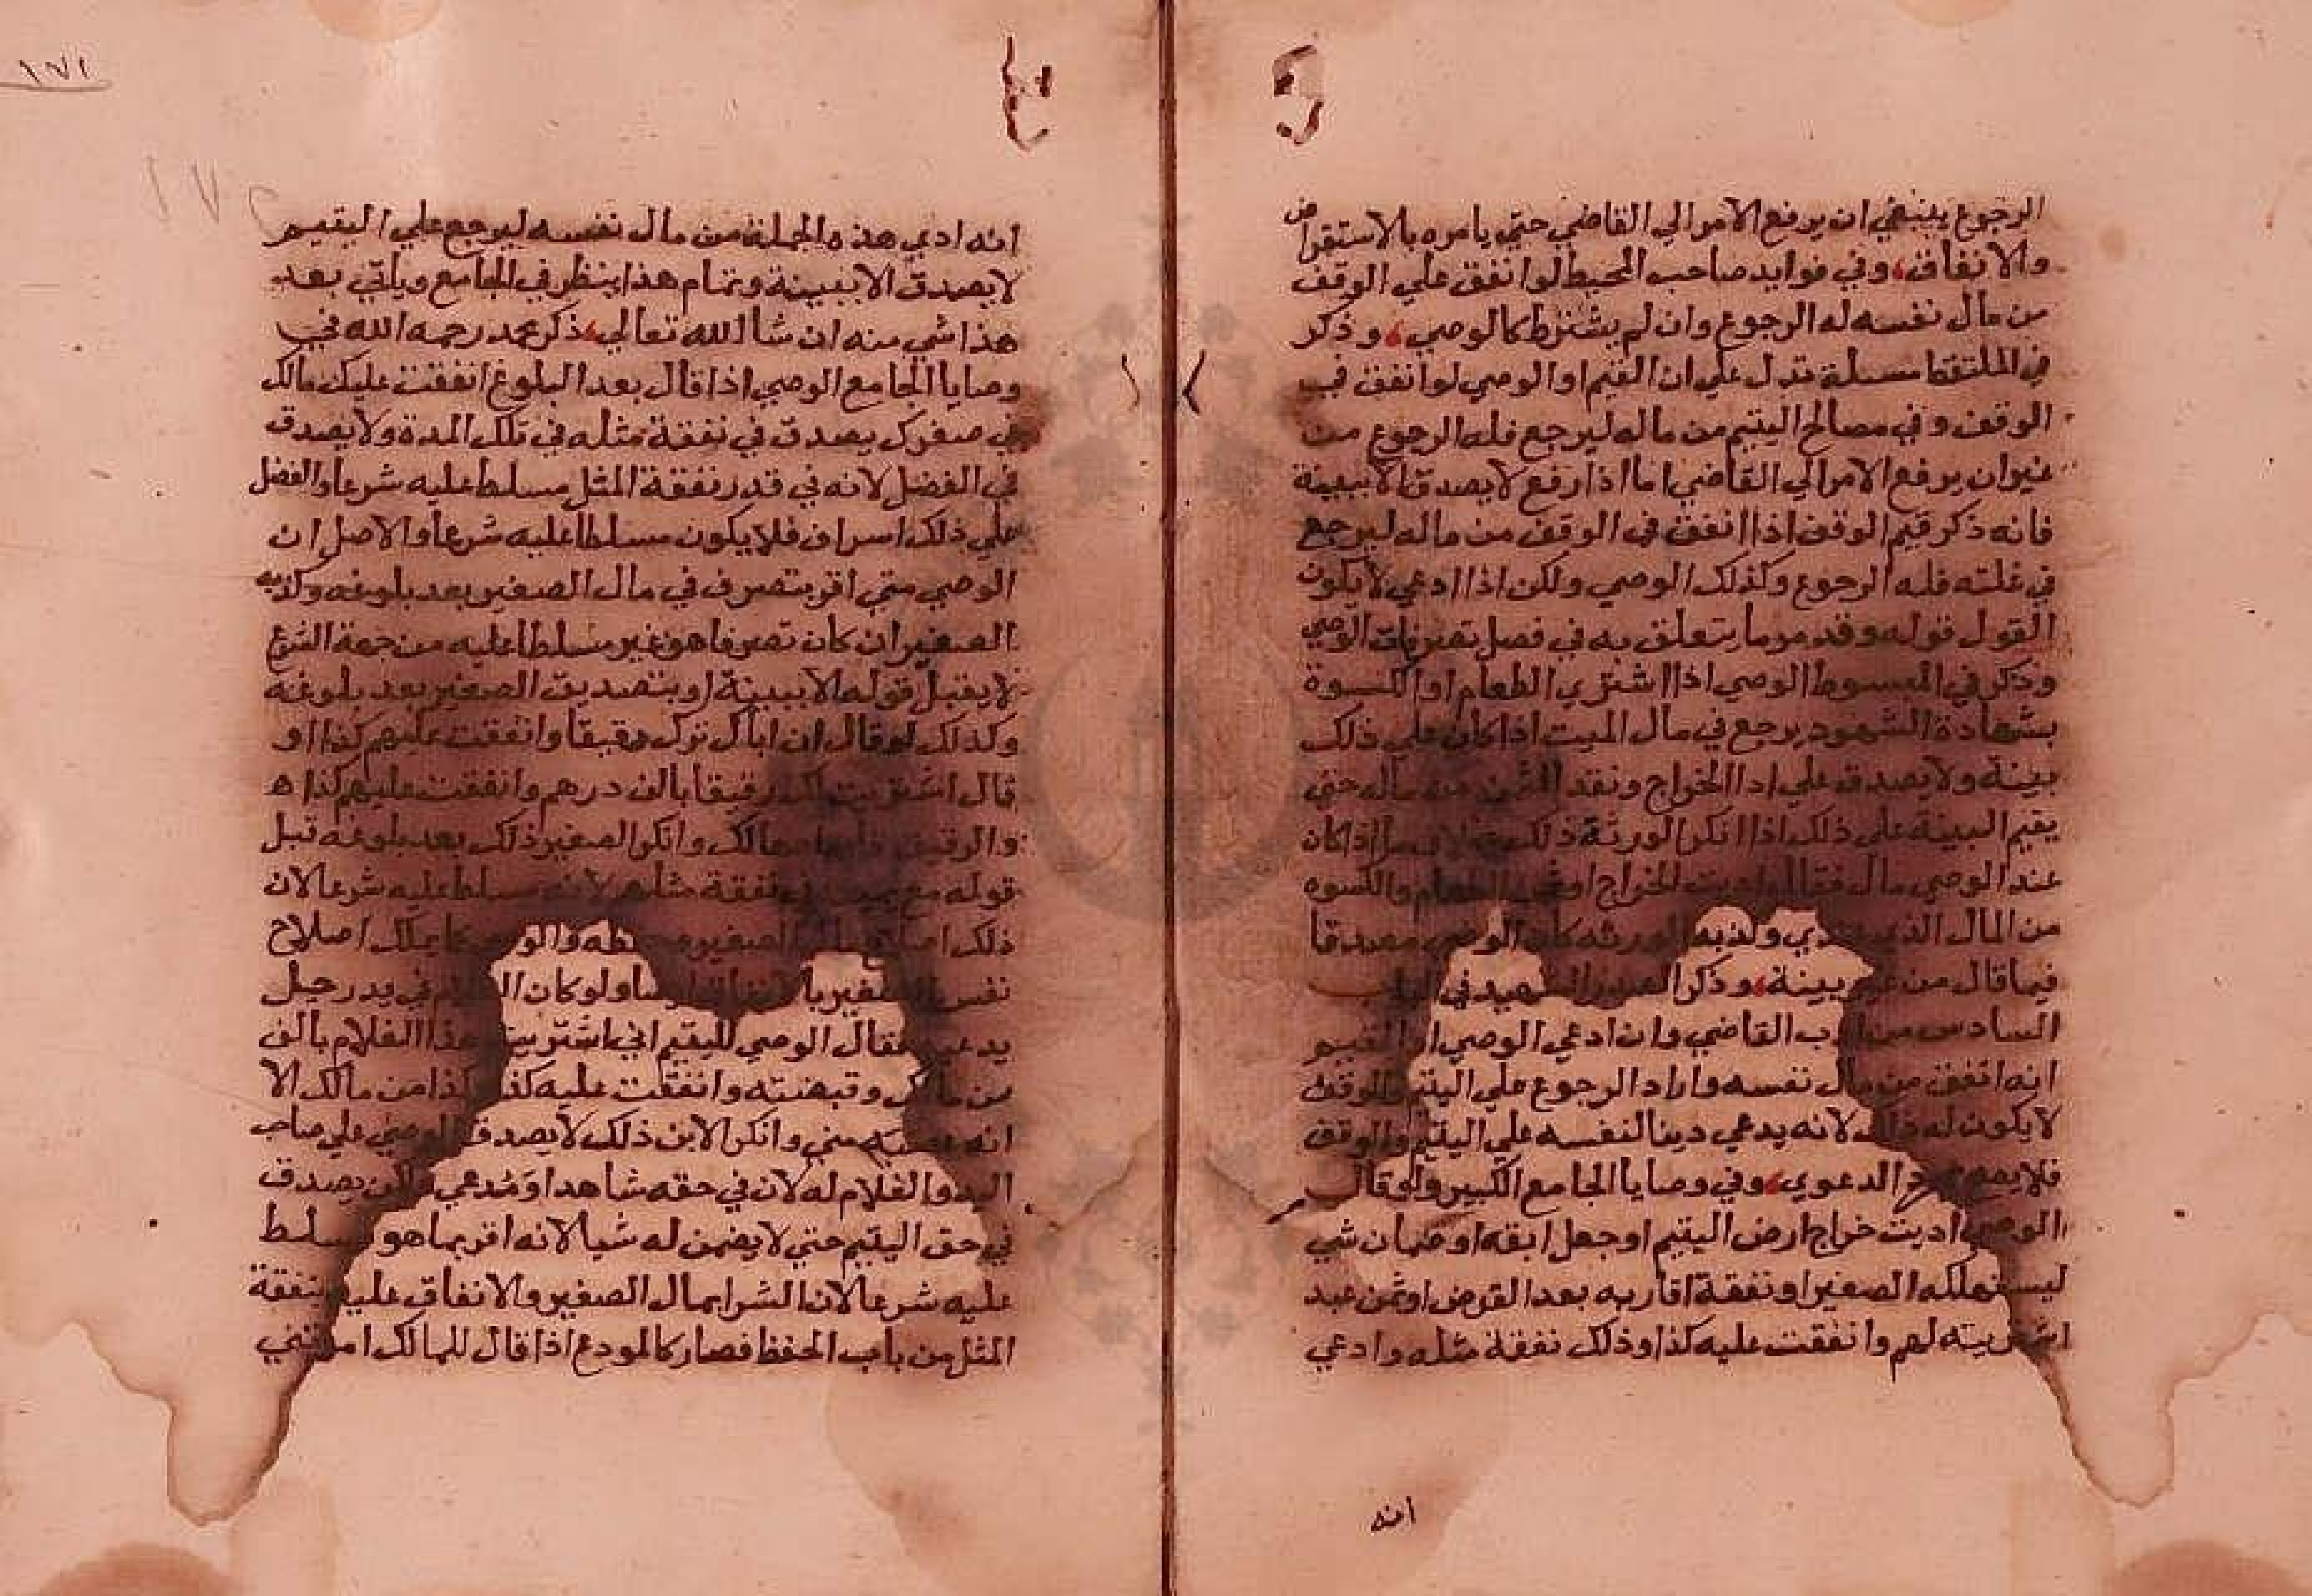 الرجوع ينبغي ان يرفع الامر الي القاضي حتي يامره بالاستقراض
والانفاق، وفي فوايد صاحب المحيط لو انفق علي الوقف
من مال نفسه له الرجوع وان لم يشترط كالوصي، وذكر
في الملتقط مسىلة تدل علي ان القيم او الوصي لو انفق في
الوقف وفي مصالح اليتيم من ماله ليرجع فله الرجوع من
غيران يرفع الامر الي القاضي اما اذا رفع لا يصدق الا ببينة
فانه ذكر قيم الوقف اذا انفق في الوقف من ماله ليرجع
في غلته فله الرجوع وكذلك الوصي ولكن اذا ادعي لا يكون
القول قوله وقد مر ما يتعلق به في فصل تصرفات الوصي
وذكر في المبسوط الوصي اذا اشتري الطعام او الكسوة
بشهادة الشهود يرجع في مال الميت اذا كان علي ذلك
بينة ولا يصدق علي ادا الخراج ونقد الثمن من ماله حتي
يقيم البينة علي ذلك اذا انكر الورثة ذلك اذا كان
عند الوصي مال فقال اديت الخراج او الطعام والكسوه
من المال الذي ولذبه الورثه كان الوصي مصدقا
فيما قال من غير بينة، وذكر الصدر الشهيد في الباب
السادس من ادب القاضي وان ادعي الوصي او القيم
انه انفق من مال نفسه واراد الرجوع علي اليتيم والوقف
لا يكون له ذلك لانه يدعي دينا لنفسه علي اليتيم والوقف
فلا يصح الدعوي، وفي وصايا الجامع الكبير ولو قال
الوصي اديت خراج ارض اليتيم او جعل ابقه او ضمان شي
ليستهلكه الصغير او نفقة اقاربه بعد القرض او ثمن عبد
اشتريته لهم وانفقت عليه كذا وذلك نفقة مثله وادعي
انه
١٧١
١٧٢
انه ادي هذه الجملة من مال نفسه ليرجع علي اليتيم
لا يصدق الا ببينة وتمام هذا ينظر في الجامع وياتي بعد
هذا شي منه ان شا الله تعالي، ذكر محمد رحمه الله في
وصايا الجامع الوصي اذا قال بعد البلوغ انفقت عليك مالك
في صغرك يصدق في نفقة مثله في تلك المدة ولا يصدق
في الفضل لانه في قدر نفقة المثل مسلط عليه شرعا والفضل
علي ذلك اسراف فلا يكون مسلطا عليه شرعا والاصل ان
الوصي متي اقر بتصرف في مال الصغير بعد بلوغه وكذبه
الصغير ان كان تصرفا هو غير مسلط عليه من جهة الشرع
لا يقبل قوله الا ببينة او بتصديق الصغير بعد بلوغه
وكذلك لو قال ان اباك ترك رقيقا وانفقت عليهم كذا او
قال اشتريت لك رقيقا بالف درهم وانفقت عليهم كذا ه
والرقيق مالك وانكر الصغير ذلك بعد بلوغه قبل
قوله مع يمينه في نفقة مثلهم لانه مسلط عليه شرعا لان
ذلك اصلاح الصغير والوصي كما يملك اصلاح
نفس الصغير ولو كان الغلام في يد رجل
يدعيه فقال الوصي لليتيم اني اشتريت هذا الغلام بالف
من مالك وقبضته وانفقت عليه كذا كذا من مالك الا
انه غصبه مني وانكر الابن ذلك لا يصدق الوصي علي صاحب
اليد والغلام له لان في حقه شاهد او مدعي ولكن يصدق
في حق اليتيم حتي لا يضمن له شيا لانه اقر بما هو مسلط
عليه شرعا لان الشرا بمال الصغير والانفاق عليه بنفقة
المثل من باب الحفظ فصار كالمودع اذا قال للمالك امرتني